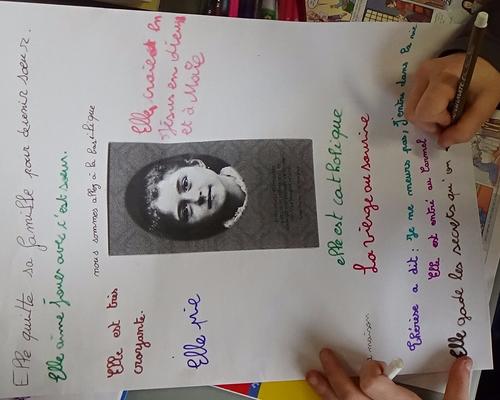 Elle quitte sa famille pour devenir sœur.
Elle aime jouer avec c'est sœur.
nous sommes allez à la basilique
Elle est très
croyante.
Elle craient en
Jésus en dieu
et à Marie
Elle prie
elle est catholique
La vierge au sourire
maison
Thérèse a dit : Je ne meurs pas, j'entre dans la vie
Elle est entré au Carmel
Elle garde les secrets qu'on